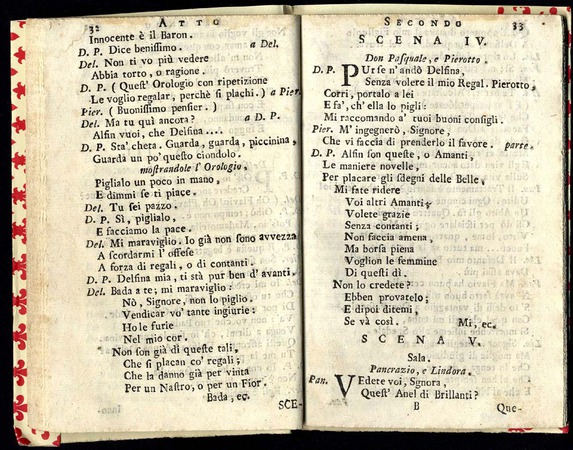 32 ATTO
Innocente è il Baron.
D. P. Dice benissimo. a Del.
Del. Non ti vo più vedere
Abbia torto, o ragione.
D. P. ( Quest' Orologio con ripetizione
Le voglio regalar, perchè si plachi. ) a Pier.
Pier. ( Buonissimo pensier. )
Del. Ma tu quì ancora? a D. P.
Alfin vuoi, che Delfina ....
D. P. Sta' cheta. Guarda, guarda, piccinina,
Guarda un po' questo ciondolo.
mostrandole l' Orologio,
Piglialo un poco in mano,
E dimmi se ti piace.
Del. Tu sei pazzo.
D. P. Sì, piglialo,
E facciamo la pace.
Del. Mi maraviglio. Io già non sono avvezza
A scordarmi l' offese
A forza di regali, o di contanti.
D. P. Delfina mia, ti stà pur ben d' avanti.
Del. Bada a te; mi maraviglio:
Nò, Signore, non lo piglio.
Vendicar vo' tante ingiurie:
Ho le furie
Nel mio cor.
Non son già di queste tali,
Che si placan co' regali;
Che la danno già per vinta
Per un Nastro, o per un Fior.
Bada, ec.
SCE-
SECONDO 33
SCENA IV.
Don Pasquale, e Pierotto.
D. P. PUr se n' andò Delfina,
Senza volere il mio Regal. Pierotto,
Corri, portalo a lei
E fa', ch' ella lo pigli:
Mi raccomando a' tuoi buoni consigli.
Pier. M' ingegnerò, Signore,
Che vi faccia di prenderlo il favore. parte.
D. P. Alfin son queste, o Amanti,
Le maniere novelle,
Per placare gli sdegni delle Belle,
Mi fate ridere
Voi altri Amanti;
Volete grazie
Senza contanti;
Non faccia amena,
Ma borsa piena
Voglion le femmine
Di questi dì.
Non lo credete?
Ebben provatelo;
E dipoi ditemi,
Se và così. Mi, ec.
SCENA V.
Sala.
Pancrazio, e Lindora.
Pan. VEdete voi, Signora,
Quest' Anel di Brillanti?
B Que-